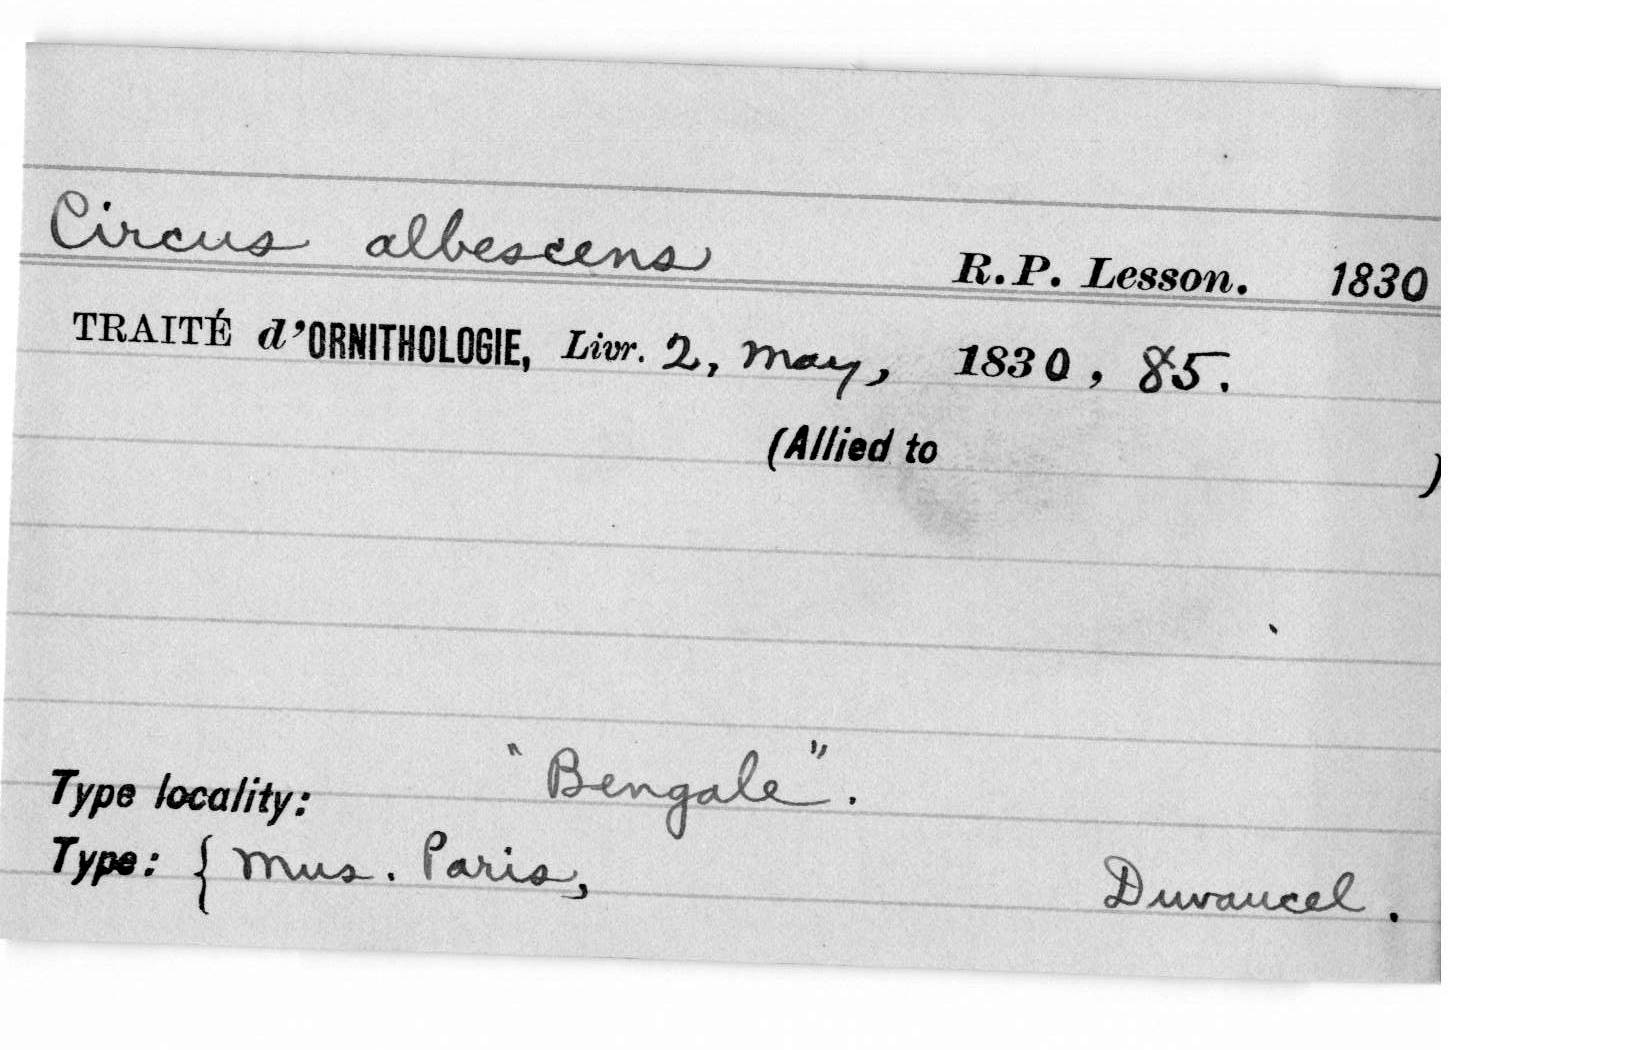 Circus albescens R.P. Lesson. 1830
TRAITÉ d'ORNITHOLOGIE, Livr. 2, May, 1830, 85.
(Allied to )
Type locality: "Bengale".
Type: { Mus. Paris, Duvaucel.